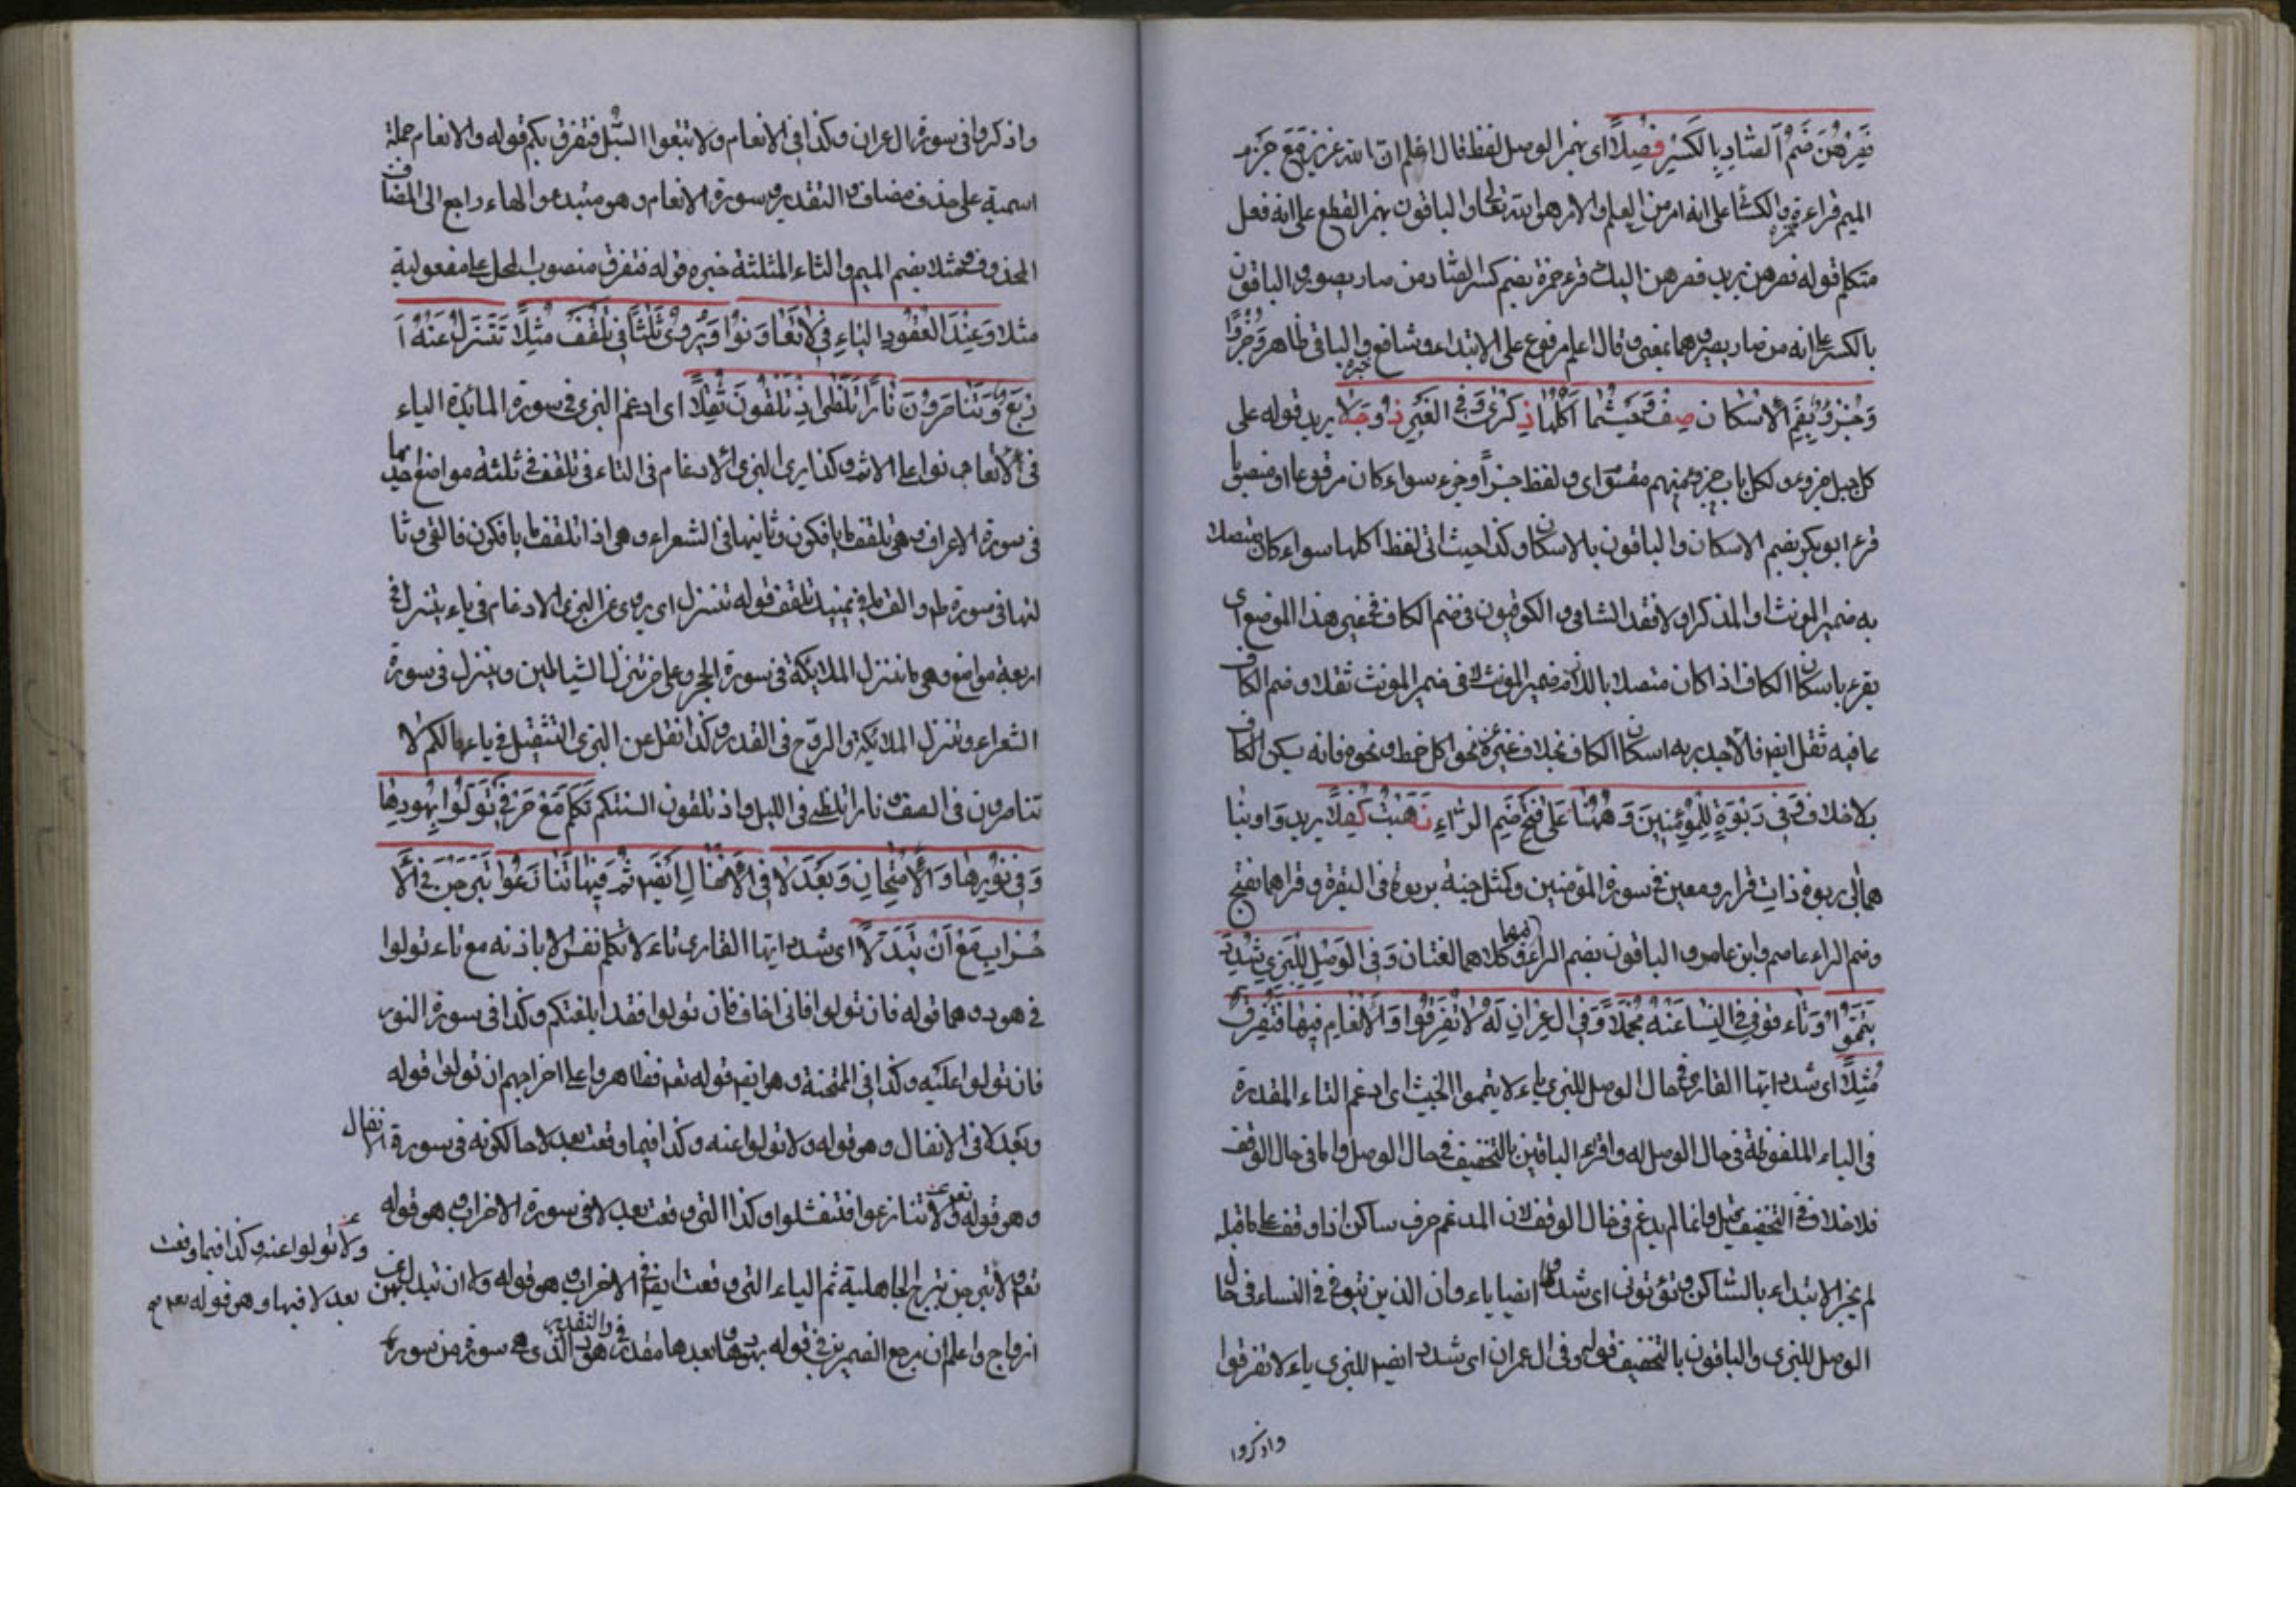 فصرهن ضم الصاد بالكسر فصلا اى بهمز الوصل لفظ قال اعلم ان الله عزيز مع جزم
الميم قراءة حمزة والكسائى على انه امر من العلم والامر هو الله تعالى والباقون بهمز القطع على انه فعل
متكلم قوله فصرهن يريد فصرهن اليك قرء حمزة بضم كسر الصاد من صار يصور والباقون
بالكسر على انه من صار يصير وهما بمعنى وقال اعلم مرفوع على الابتداء وشافع خبره والباقى ظاهر وجزؤا
وجزؤ بضم الاسكان صف وحيثما اكلها ذكرى وفى الغير ذو حلا يريد قوله على
كل جبل جزء ولكل باب جزء منهم مقسوم اى ولفظ جزأ وجزء سواء كان مرفوعا او منصوبا
قرء ابو بكر بضم الاسكان والباقون بالاسكان وكذا حيث اتى لفظ اكلها سواء كان متصلا
به ضمير المونث او المذكر او لا فقد الشامى و الكوفيون فى ضم الكاف فى غير هذا الموضع اى
يقرء باسكان الكاف اذا كان متصلا بالذى ضمير المونث لان فى ضمير المونث ثقلا وضم الكاف
مما فيه ثقل ايضا فالاجدر به اسكان الكاف بخلاف غيره نحو اكل خمط ونحوه فانه يكن الكاف
بلا خلاف وفى ربوة للمؤمنين وههنا على فتح ضم الراء نبهت كفلا يريد واوينا
هما الى ربوة ذات قرار ومعين فى سورة المؤمنين وكمثل جنة بربوة فى البقرة وقراهما بفتح
وضم الراء عاصم وابن عامر والباقون بضم الراء فيهما وكلاهما لغتان وفى الوصل للبزى شدد
تيمموا وتاء توفى فى النسا عنه مجملا وفى ال عمران له لا تفرقوا والانعام فيها فتفرق
مثلا اى شدد ايها القارى فى حال الوصل للبزى ياء لا يتمموا الخبيث اى ادغم التاء المقدرة
فى الياء الملفوظة فى حال الوصل له واقرء الباقين بالتخفيف فى حال الوصل واما فى حال الوقف
فلا خلاف فى التخفيف وانما لم يدغم فى حال الوقف لان المدغم حرف ساكن اذا وقف على ما قبله
لم يجز الابتداء بالساكن وتوفى اى شدد ايضا ياء وان الذين توفى فى النساء فى حال
الوصل للبزى والباقون بالتخفيف قوله وفى ال عمران اى شدد ايضا للبزى ياء لا تفرقوا
واذكروا
واذكروا فى سورة ال عمران وكذا فى الانعام ولا تتبعوا السبل فتفرق بكم قوله والانعام جملة
اسمية على حذف مضاف و التقدير سورة الانعام وهو مبتدء والهاء راجع الى المضاف
المحذوف ومثلا بضم الميم والثاء المثلثة خبره قوله فتفرق منصوب المحل على مفعولية
مثلا وعند العقود التاء فى لا تعاونوا ويروى ثلثا فى تلقف مثلا تنزل عنه ا
ربع وتناصرون نارا تلظى اذ تلقون ثقلا اى ادغم البزى فى سورة المائدة الياء
فى لا تعاونوا على الاثم وكذا يرى البزى الادغام فى التاء فى تلقف فى ثلثة مواضع احديها
فى سورة الاعراف وهى تلقف ما يافكون وثانيها فى الشعراء وهى اذا تلقف ما يافكون فالقى وثا
لثها فى سورة طه و الق ما فى يمينك تلقف قوله تنزل اى يروى عن البزى الادغام فى ياء يتنزل فى
اربعة مواضع وهى ما تنزل الملايكة فى سورة الحجر وعلى من تنزل الشياطين وتنزل فى سورة
الشعراء وتنزل الملائكة والروح فى القدر وكذا نقل عن البزى التثقيل فى ياء ما لكم لا
تناصرون فى الصف ونارا تلظى فى الليل واذ تلقون السنتكم تكلم مع حرفى تولوا بهودها
وفى نورها والامتحان وبعد لا فى الانفال ايضا ثم فيها تنازعوا تبرجن فى الا
حزاب مع ان تبدلا اى شدد ايها القارى تاء لا تكلم نفس الا باذنه مع تاء تولوا
فى هود وهما قوله فان تولوا فانى اخاف فان تولوا فقد ابلغتكم وكذا فى سورة النور
فان تولوا عليه وكذا فى الممتحنة وهو ايضا قوله تعم وظاهروا على اخراجهم ان تولوهم قوله
وبعد لا فى الانفال وهو قوله ولا تولوا عنه وكذا فيما وقعت بعد لا حالكونه فى سورة الانفال
وهو قوله تعم ولا تنازعوا فتفشلوا وكذا التى وقعت بعد لا فى سورة الاحزاب وهو قوله
تعم ولا تبرجن تبرج الجاهلية ثم الياء التى وقعت ايضا فى الاحزاب وهو قوله ولا ان تبدل بهن
ازواج واعلم ان مرجع الضميرين فى قوله بهودها وما بعدها مقدر والتقدير فى هود الذى هى سورة من سورة
ولا تولوا عنه وكذا فيما وقعت
بعد لا فيها وهو قوله تعم